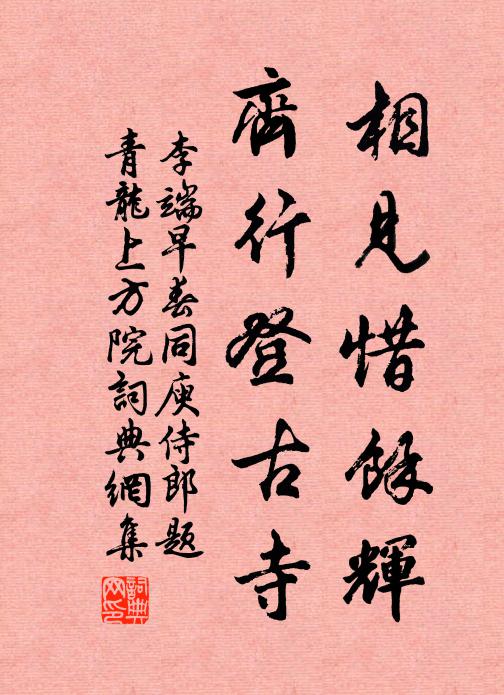 相見惜餘輝
齊行登古寺
李端早春同庾侍郎題
青龍上方院詞典網集
詞典網印